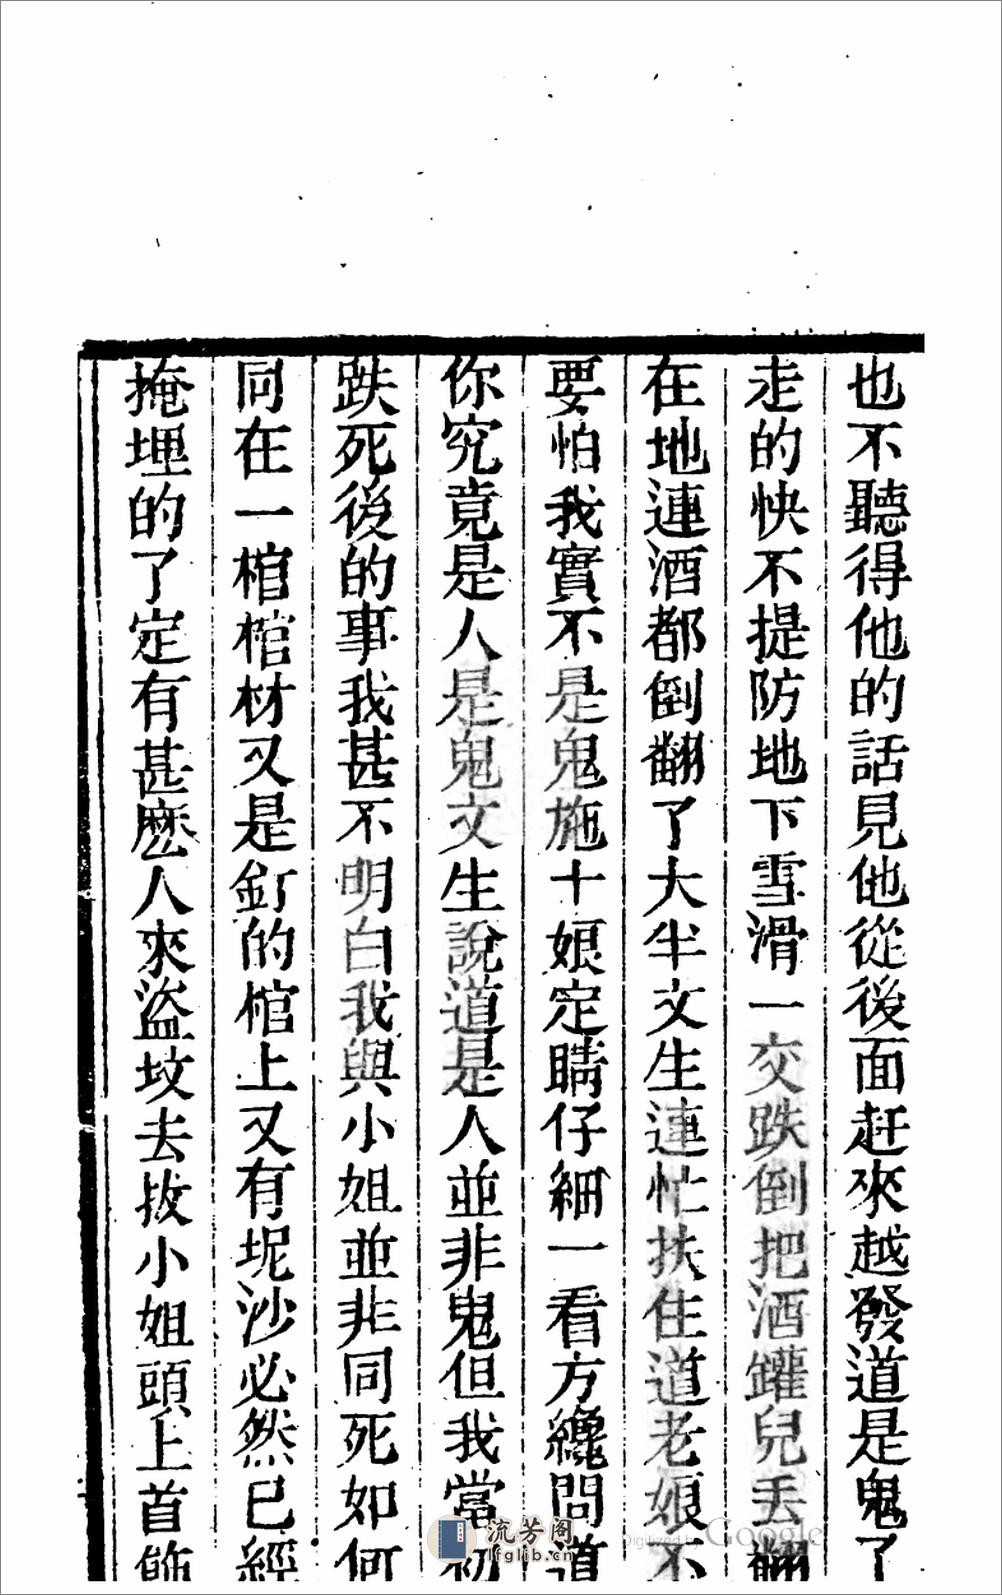 也不聽得他的話見他從後面赶來越發道是鬼了
走的快不提防地下雪滑一交跌倒把酒罐兒丢翻
在地連酒都倒翻了大半文生連忙扶住道老娘不
要怕我實不是鬼施十娘定睛仔細一看方纔問道
你究竟是人是鬼文生說道是人並非鬼但我當初
跌死後的事我甚不明白我與小姐並非同死如何
同在一棺棺材又是釘的棺上又有坭沙必然已經
掩埋的了定有甚麽人來盜墳去拔小姐頭上首飾
流芳阁
lfglib.cn
Digitized by Google